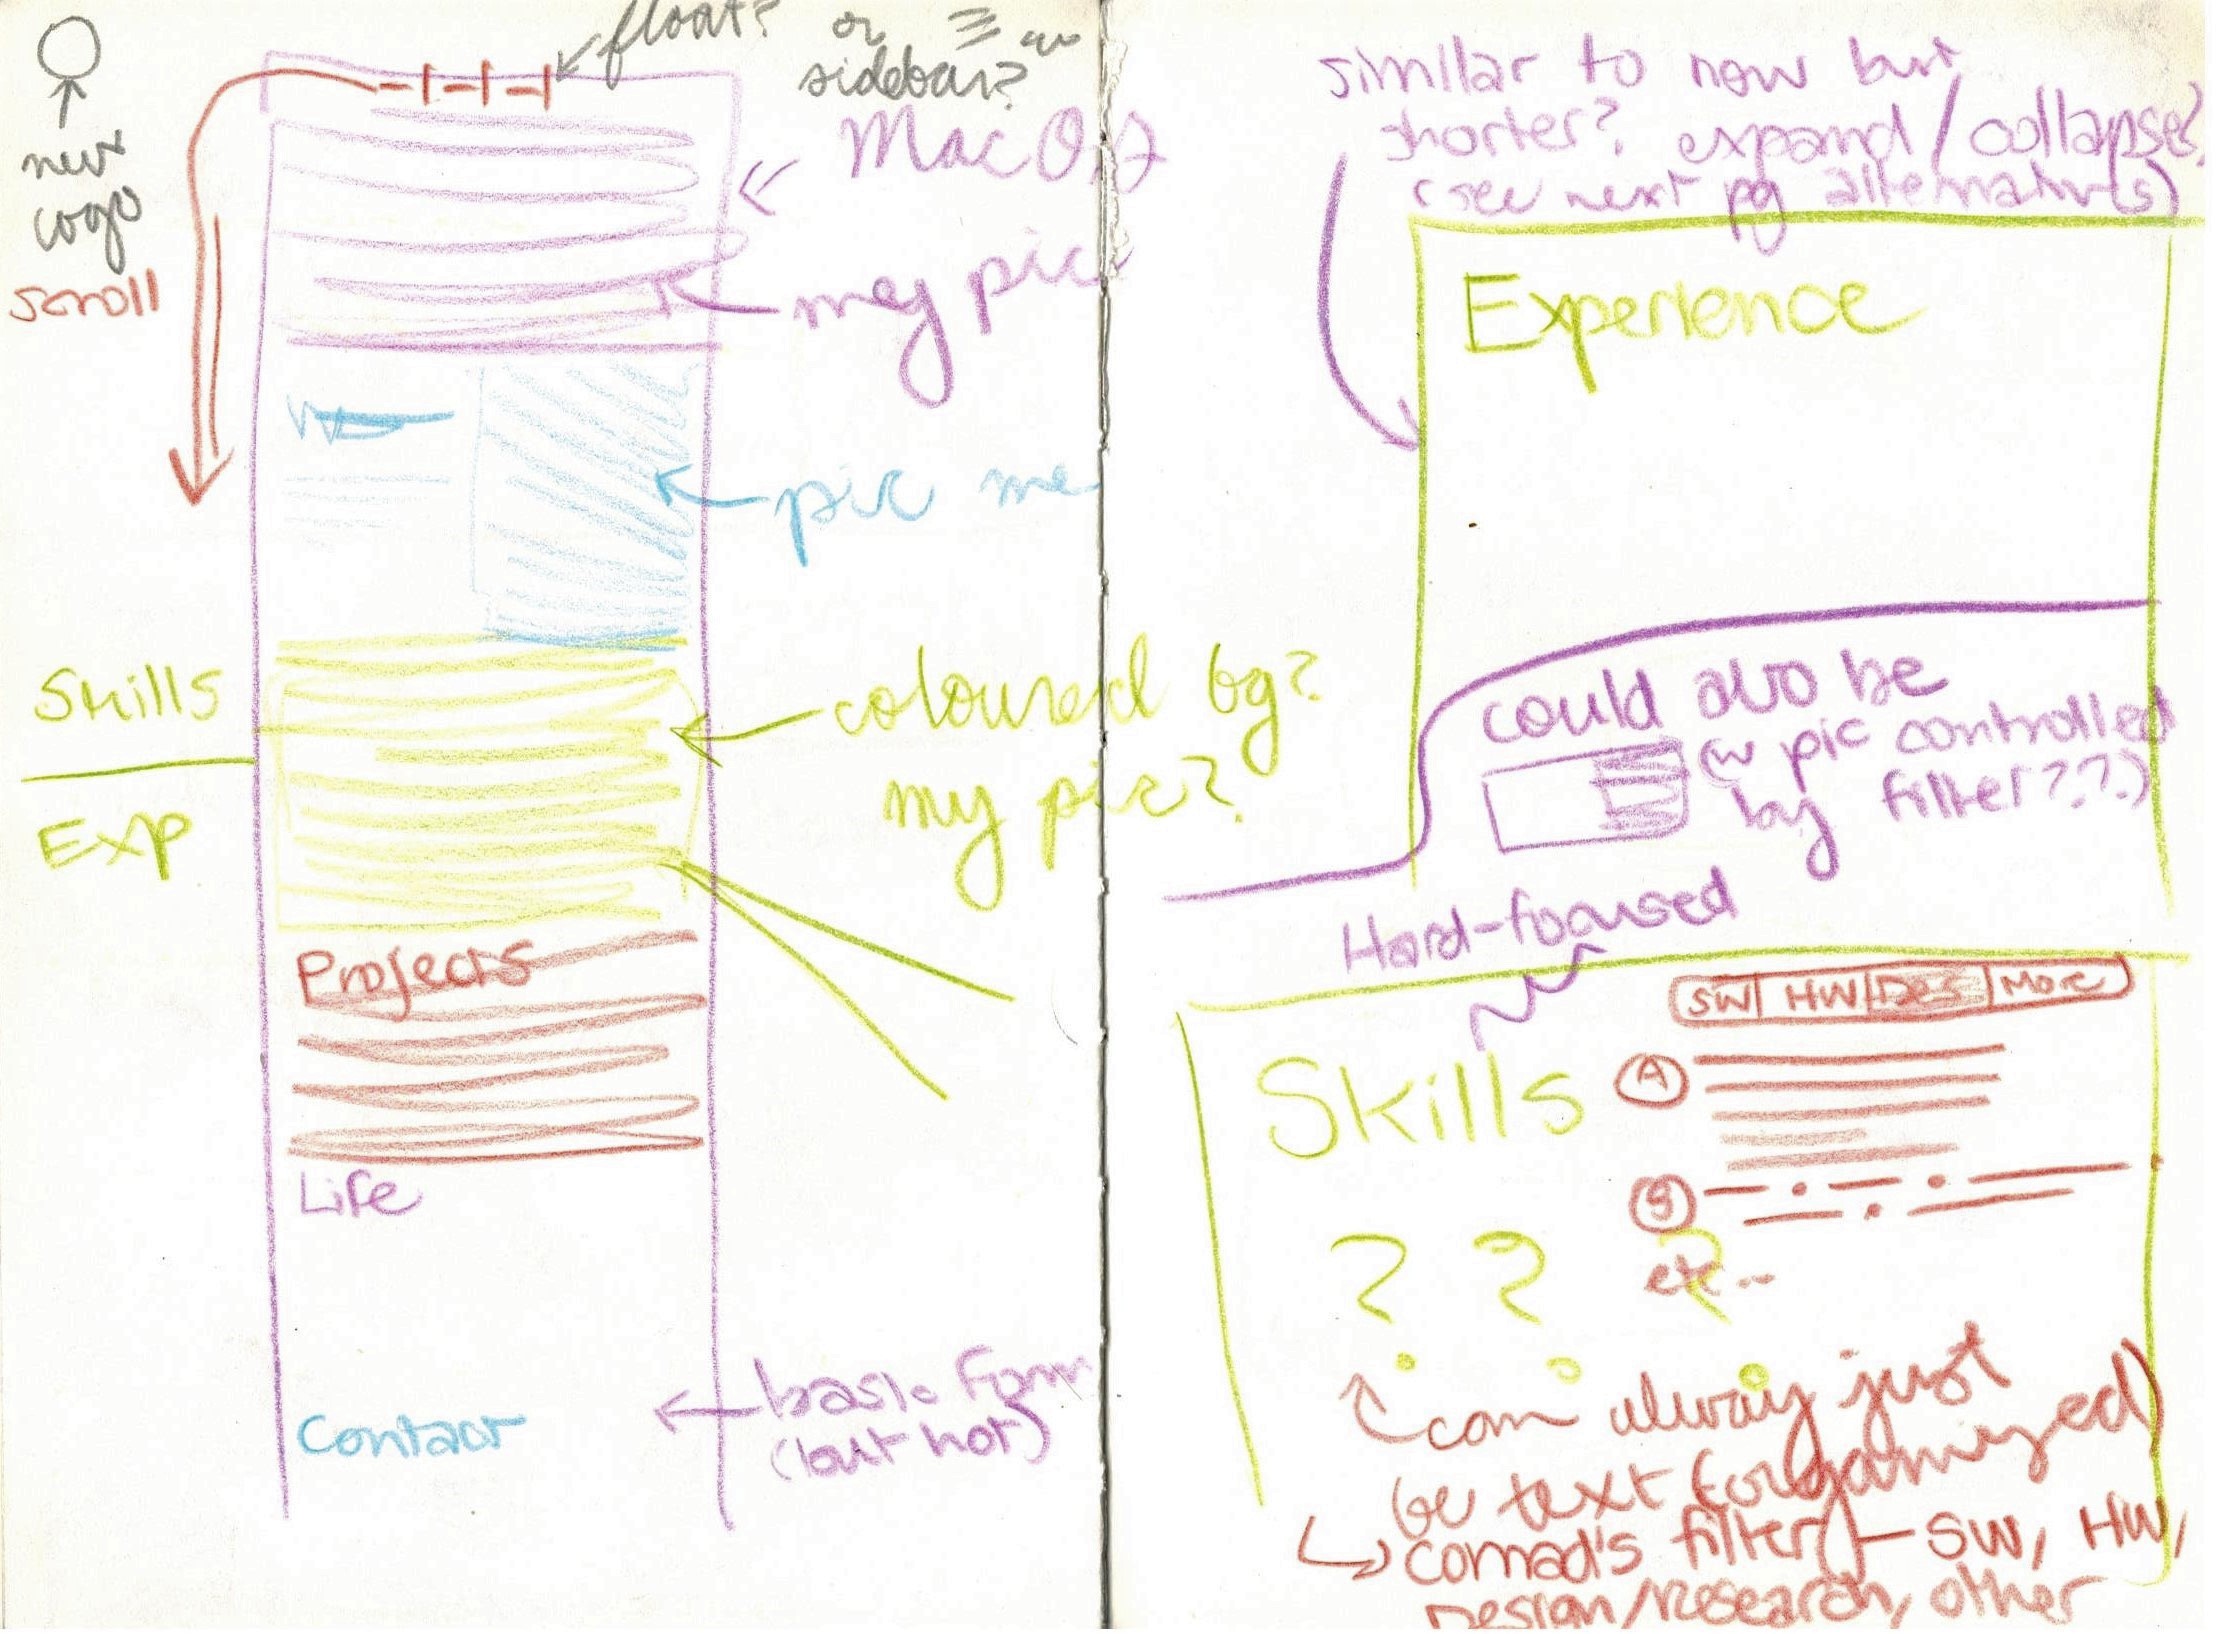 new
logo
scroll
float? or
sidebar?
Mac OSX
my pic
pic me
Skills
Exp
coloured bg?
my pic?
Projects
Life
Contact
basic form
(but hot)
similar to now but
shorter? expand/collapse?
(see next pg alternatives)
Experience
could also be
(w pic controlled
by filter???)
Hard-focused
SW HW Des More
Skills
A
B
etc...
? ? ?
can always just
be text (organized)
Conrad's filter - SW, HW,
Design/research, other